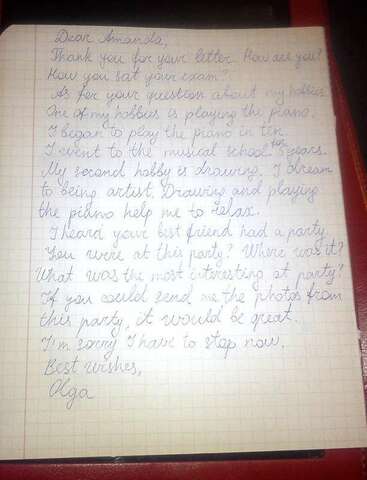 Dear Amanda,
Thank you for your letter. How are you?
How you sat your exam?
As for your question about my hobbies.
One of my hobbies is playing the piano.
I began to play the piano in ten.
I went to the musical school for 5 years.
My second hobby is drawing. I dream
to being artist. Drawing and playing
the piano help me to relax.
I heard your best friend had a party.
You were at this party? Where was it?
What was the most interesting at party?
If you could send me the photos from
this party, it would be great.
I'm sorry I have to stop now.
Best wishes,
Olga